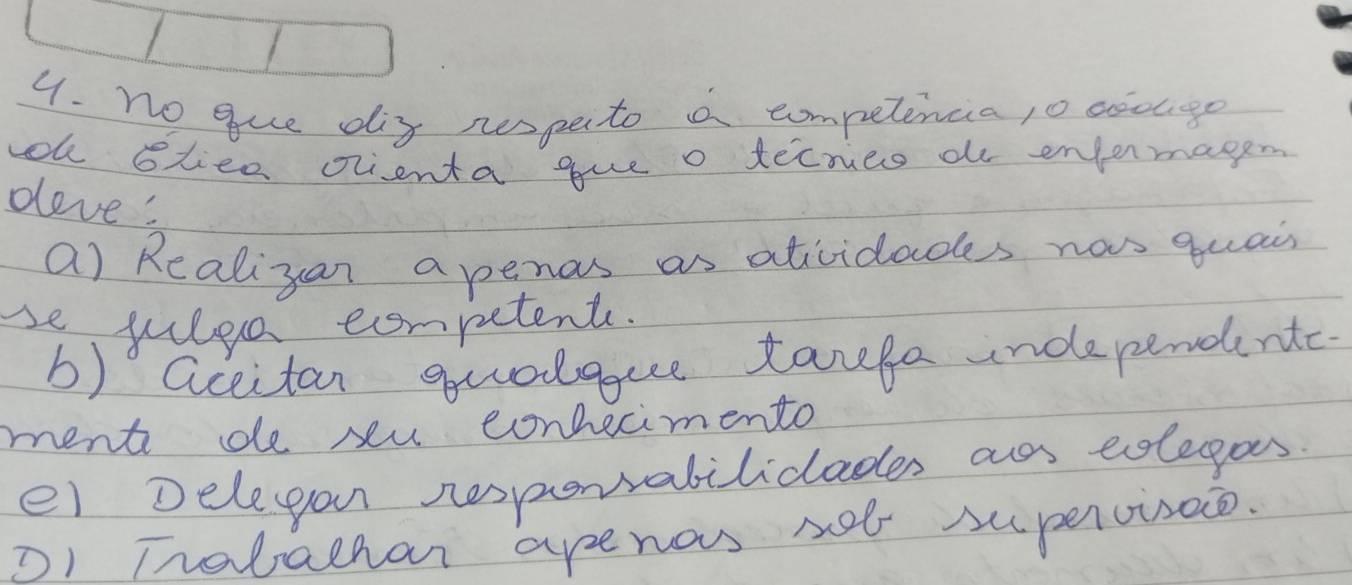 4. No que diz respeito à competência, o código
de Ética orienta que o técnico de enfermagem
deve:
a) Realizar apenas as atividades nas quais
se julga competente.
b) Aceitar qualque tarefa independente-
mente de seu conhecimento
c) Delegar responsabilidades aos colegas.
D) Trabalhar apenas sob supervisão.